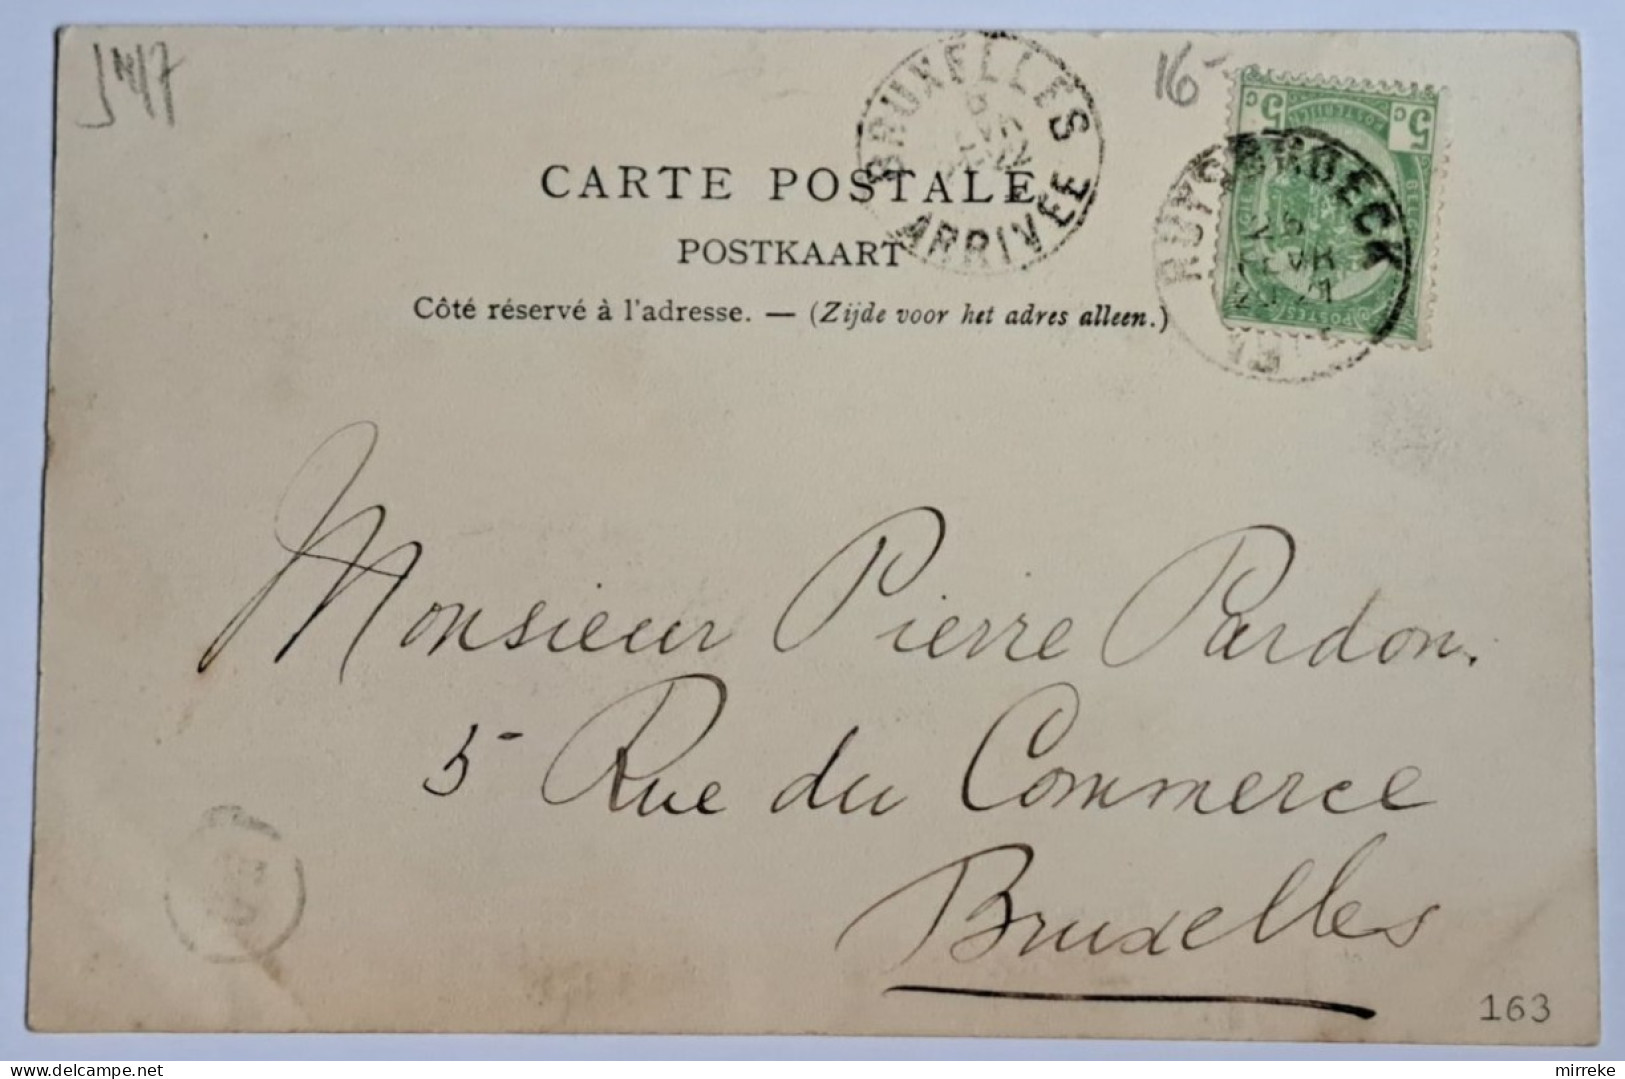 16
BRUXELLES
ARRIVÉE
5 c 5 c
RUYSBROECK
POSTES
CARTE POSTALE
POSTKAART
Côté réservé à l'adresse. — (Zijde voor het adres alleen.)
Monsieur Pierre Pardon.
5 Rue du Commerce
Bruxelles
163
mirreke